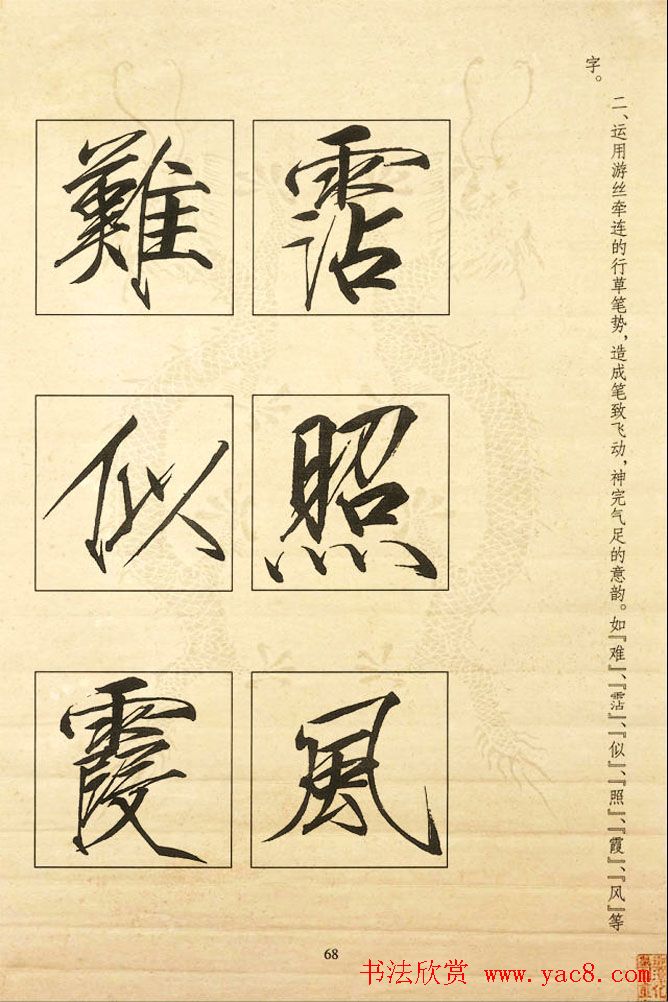 字。
二、运用游丝牵连的行草笔势，造成笔致飞动，神完气足的意韵。如『难』、『霑』、『似』、『照』、『霞』、『风』等
霑
難
照
似
風
霞
68
书法欣赏 www.yac8.com